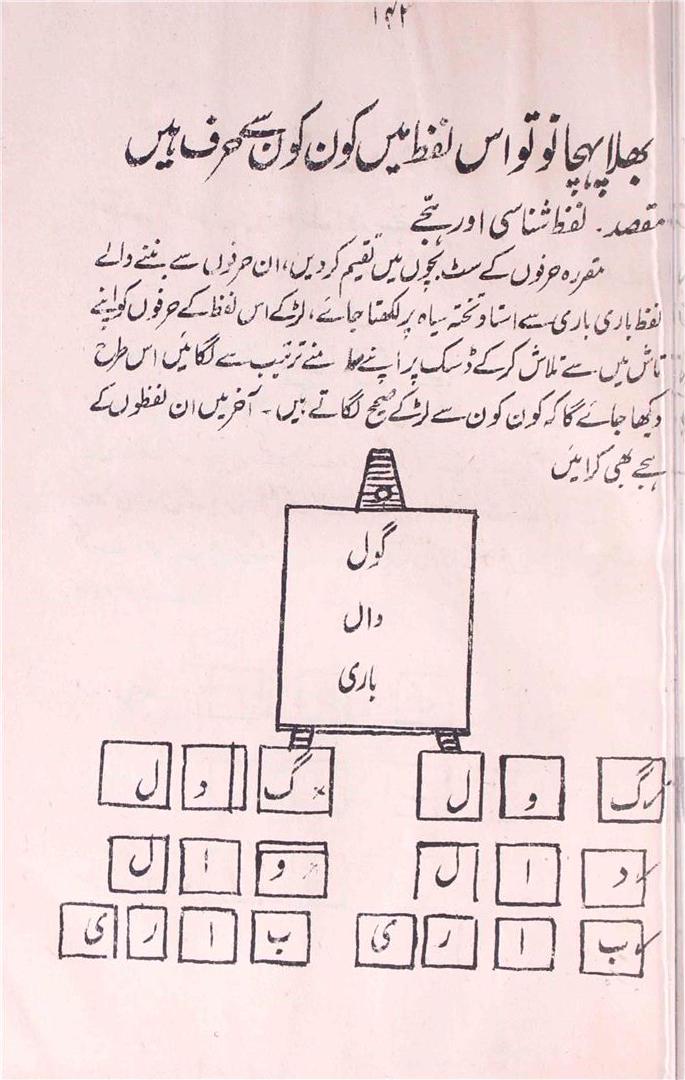 ۱۴۲
بھلا پہچانو تو اس لفظ میں کون کون سے حرف ہیں
مقصد۔ لفظ شناسی اور ہجے
مقررہ حرفوں کے سٹ بچوں میں تقسیم کردیں، ان حرفوں سے بننے والے
لفظ باری باری سے استاد تختہ سیاہ پر لکھتا جائے، لڑکے اس لفظ کے حرفوں کو اپنے
تاش میں سے تلاش کرکے ڈسک پر اپنے سامنے ترتیب سے لگائیں اس طرح
دیکھا جائے گا کہ کون کون سے لڑکے صحیح لگاتے ہیں۔ آخر میں ان لفظوں کے
ہجے بھی کرائیں
گول
دال
باری
گ و ل × گ د ل
د ا ل × و ا ل
ب ا ر ی ب ا ر ی